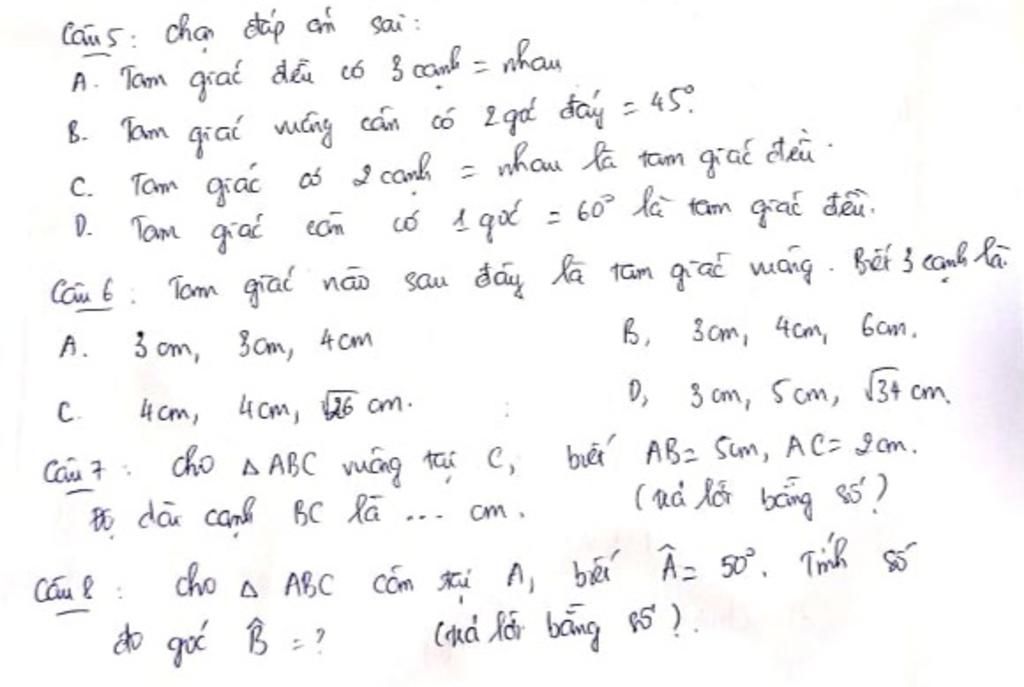 Câu 5: Chọn đáp án sai:
A. Tam giác đều có 3 cạnh = nhau
B. Tam giác vuông cân có 2 góc đáy = 45°.
C. Tam giác có 2 cạnh = nhau là tam giác đều.
D. Tam giác cân có 1 góc = 60° là tam giác đều.
Câu 6: Tam giác nào sau đây là tam giác vuông. Biết 3 cạnh là
A. 3cm, 3cm, 4cm B, 3cm, 4cm, 6cm.
C. 4cm, 4cm, √26 cm. D, 3cm, 5cm, √34 cm.
Câu 7: Cho △ABC vuông tại C, biết AB = 5cm, AC = 2cm.
Độ dài cạnh BC là ... cm. (trả lời bằng số?)
Câu 8: Cho △ABC cân tại A, biết Â = 50°. Tính số
đo góc B̂ = ? (trả lời bằng số?).